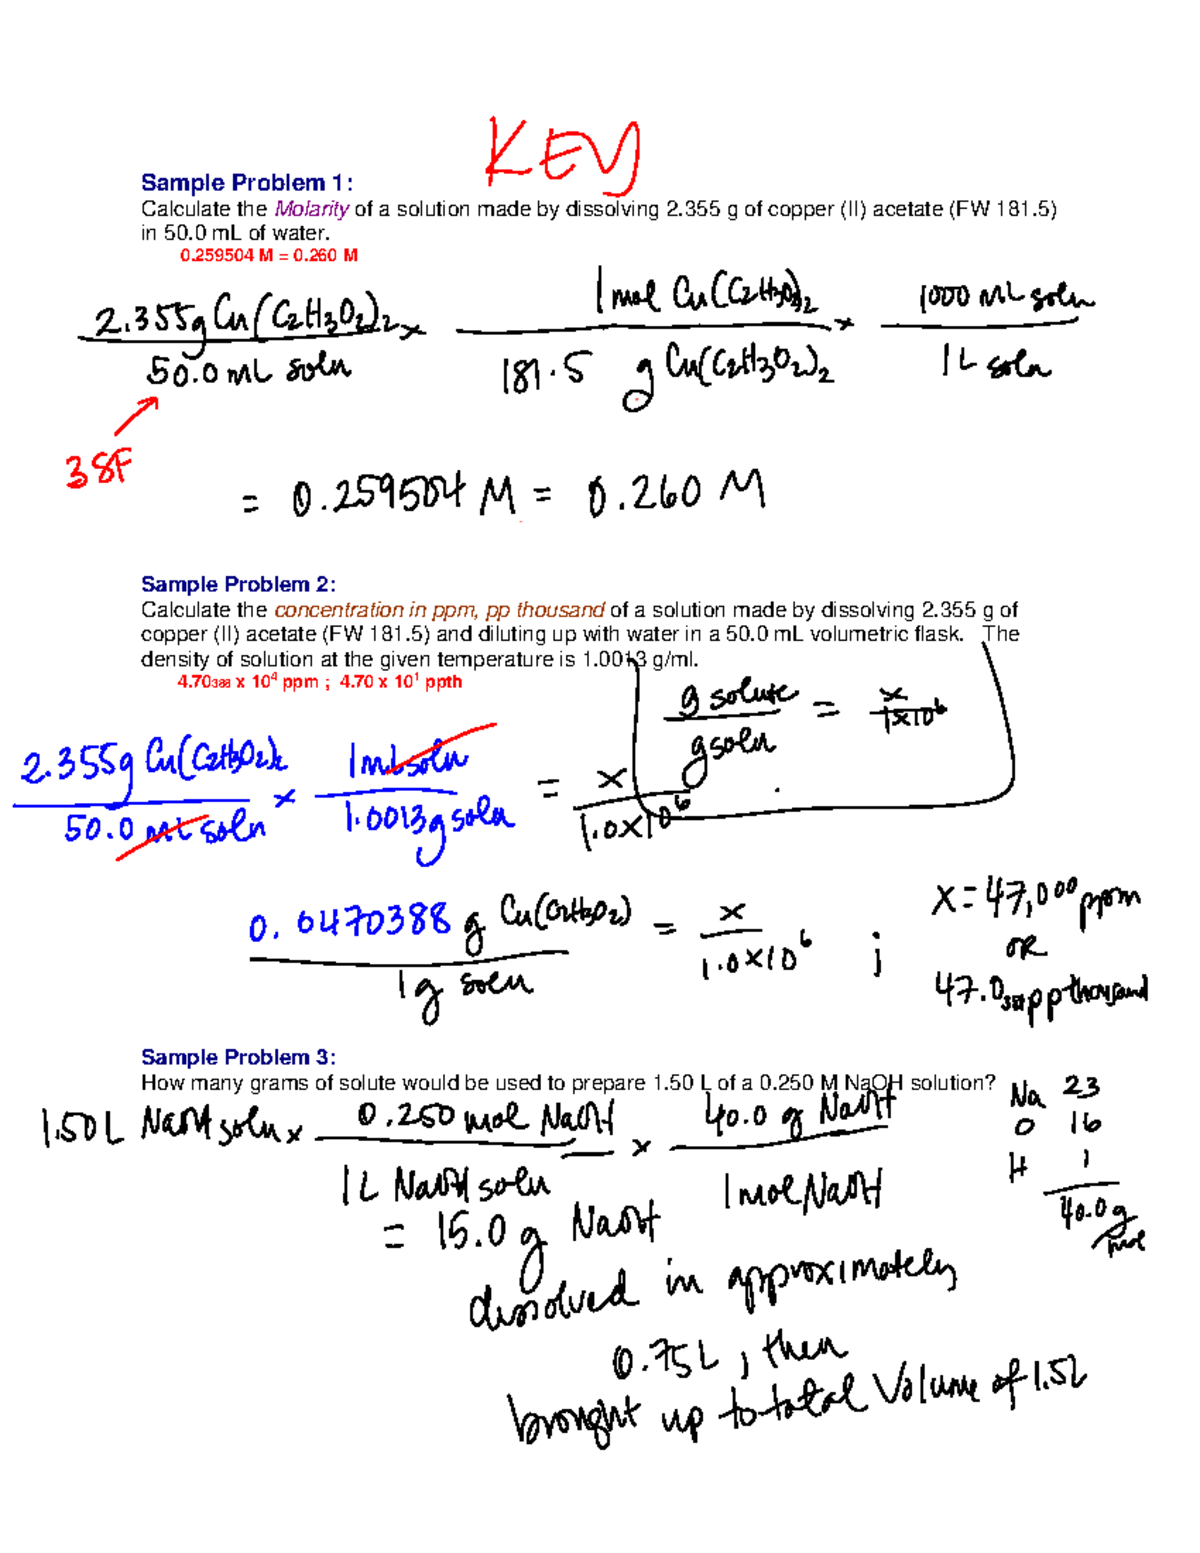 KEY
Sample Problem 1:
Calculate the Molarity of a solution made by dissolving 2.355 g of copper (II) acetate (FW 181.5)
in 50.0 mL of water.
0.259504 M = 0.260 M
2.355g Cu(C2H3O2)2 × 1 mol Cu(C2H3O2)2 × 1000 mL soln
50.0 mL soln 181.5 g Cu(C2H3O2)2 1 L soln
3 SF
= 0.259504 M = 0.260 M
Sample Problem 2:
Calculate the concentration in ppm, pp thousand of a solution made by dissolving 2.355 g of
copper (II) acetate (FW 181.5) and diluting up with water in a 50.0 mL volumetric flask. The
density of solution at the given temperature is 1.0013 g/ml.
4.70388 x 10⁴ ppm ; 4.70 x 10¹ ppth
g solute = x
g soln 1x10⁶
2.355g Cu(C2H3O2)2 × 1 mL soln = x
50.0 mL soln 1.0013 g soln 1.0x10⁶
0.0470388 g Cu(C2H3O2) = x ; x = 47,000 ppm
1 g soln 1.0x10⁶ OR
47.0388 pp thousand
Sample Problem 3:
How many grams of solute would be used to prepare 1.50 L of a 0.250 M NaOH solution?
Na 23
O 16
H 1
40.0 g
mol
1.50 L NaOH soln × 0.250 mol NaOH × 40.0 g NaOH
1 L NaOH soln 1 mol NaOH
= 15.0 g NaOH
dissolved in approximately
0.75 L, then
brought up to total Volume of 1.5L